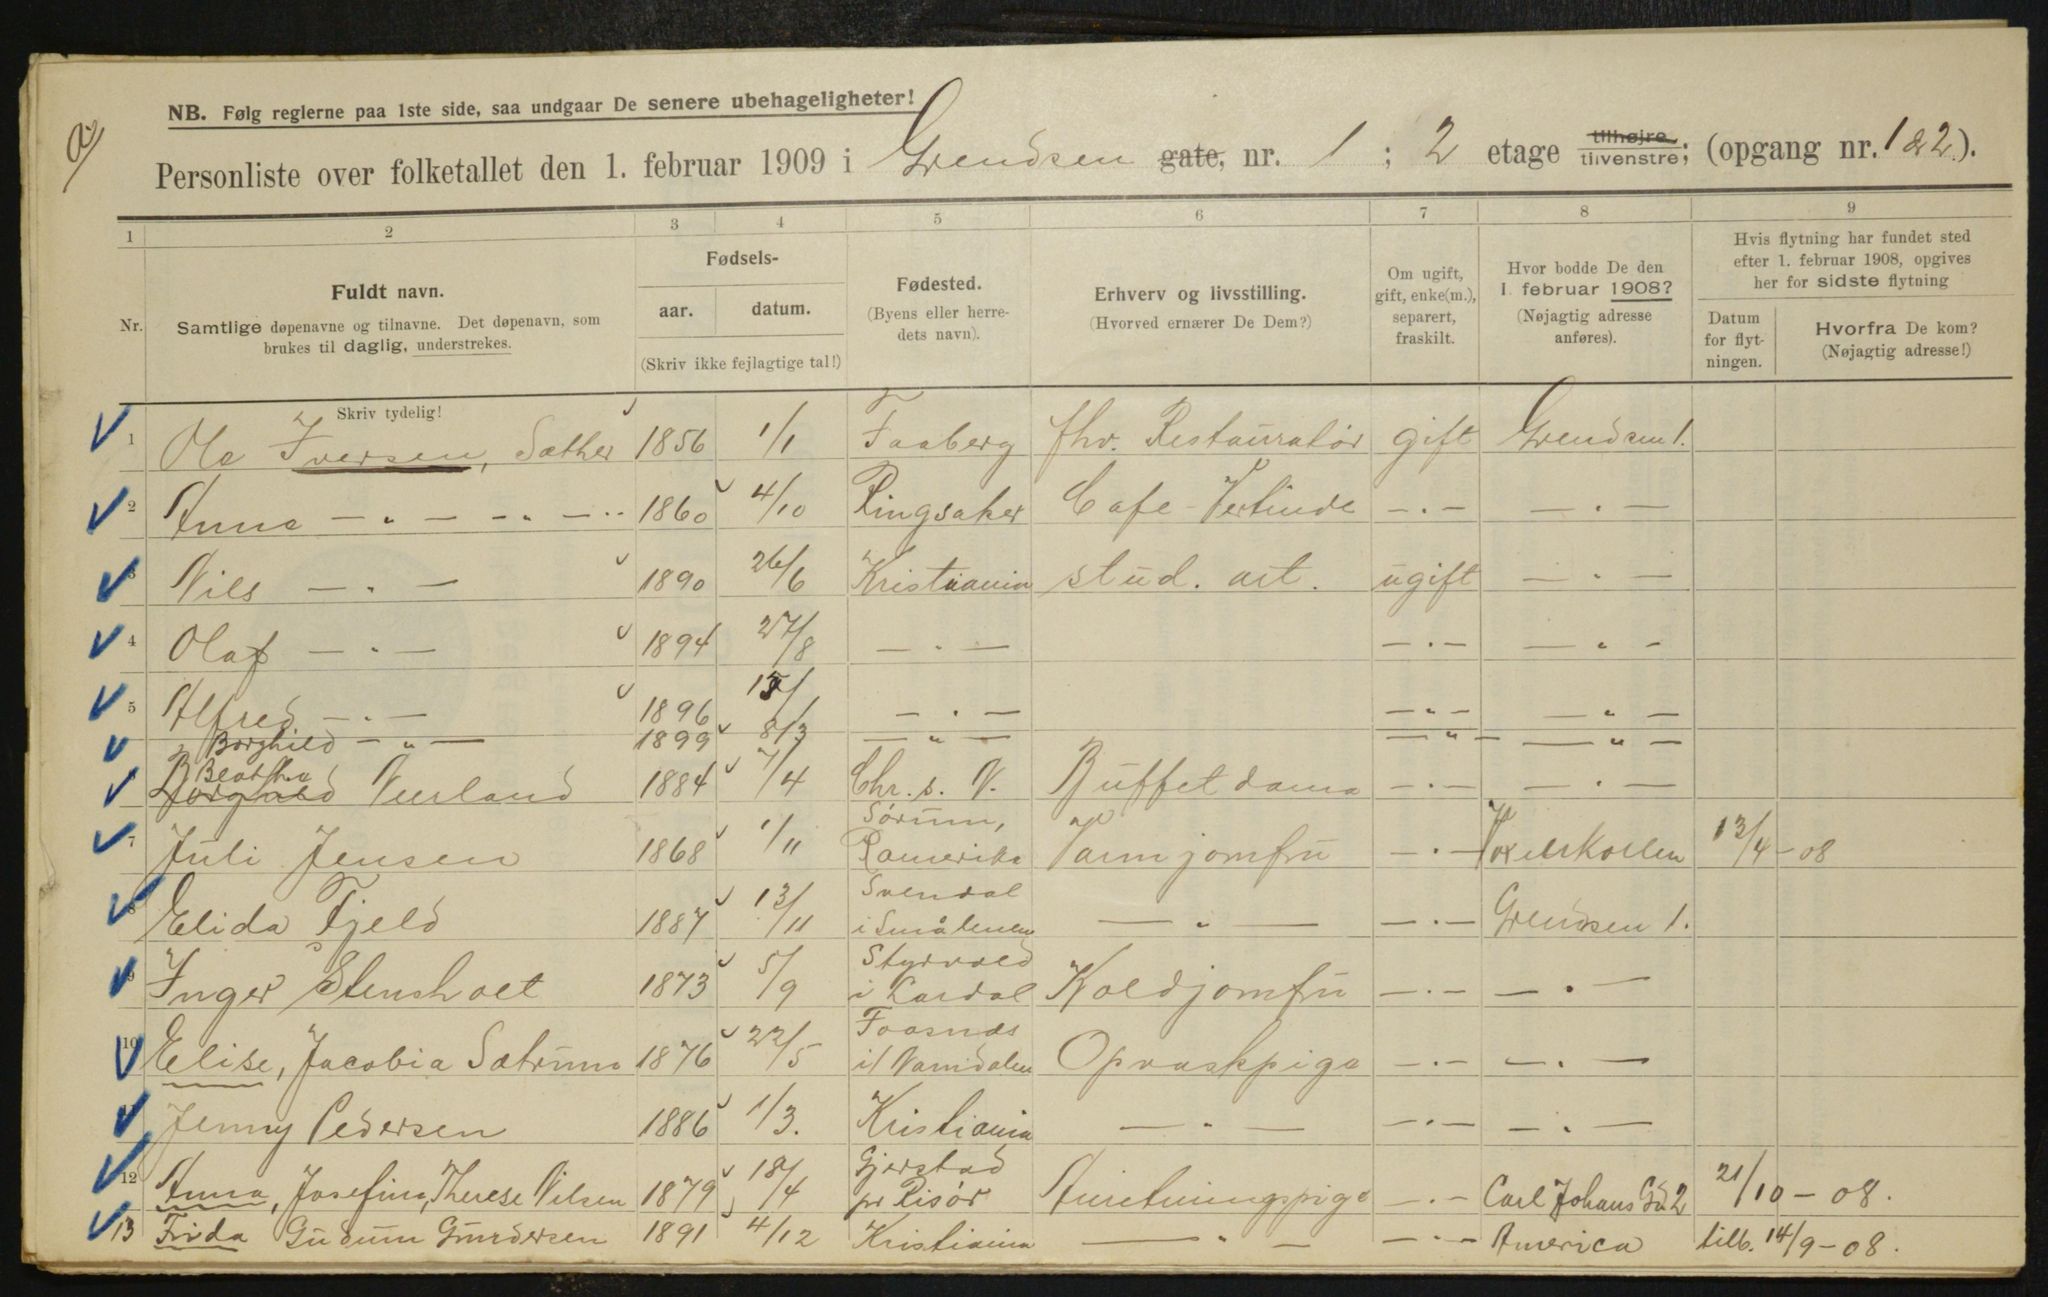 NB. Følg reglerne paa 1ste side, saa undgaar De senere ubehageligheter!
Personliste over folketallet den 1. februar 1909 i Grendsen gate, nr. 1; 2 etage tilhøjre tilvenstre; (opgang nr. 1 & 2.).
1 2 3 4 5 6 7 8 9
Nr.
Fuldt navn.
Samtlige døpenavne og tilnavne. Det døpenavn, som
brukes til daglig, understrekes.
Skriv tydelig!
Fødsels-
aar. datum.
(Skriv ikke fejlagtige tal!)
Fødested.
(Byens eller herre-
dets navn).
Erhverv og livsstilling.
(Hvorved ernærer De Dem?)
Om ugift,
gift, enke(m.),
separert,
fraskilt.
Hvor bodde De den
1 februar 1908?
(Nøjagtig adresse
anføres).
Hvis flytning har fundet sted
efter 1. februar 1908, opgives
her for sidste flytning
Datum
for flyt-
ningen.
Hvorfra De kom?
(Nøjagtig adresse!)
1 Ole Iversen, Sæther 1856 1/1 Faaberg fhv. Restauratør gift Grendsen 1.
2 Anne — " — — " — 1860 4/10 Ringsaker Cafe-Vertinde — " — — " —
3 Nils — " — 1890 26/6 Kristiania stud. art. ugift — " —
4 Olaf — " — 1894 27/8 — " — — " — — " —
5 Alfred — " — 1896 15/1 — " — — " — — " —
Borghild — " — 1899 8/3 — " — — " — — " —
Beatha Neerland 1884 7/4 Chr. s. N. Buffetdame — " — — " —
7 Juli Jensen 1868 1/11 Sørum, Romerike Varmjomfru — " — 13/4-08
8 Elida Fjeld 1887 13/11 Svendal i Smålenene — " — — " — Grendsen 1.
9 Inger Stensholt 1873 5/9 Styrvold i Lardal Koldjomfru — " — — " —
10 Elise, Jacobia Sætrum 1876 22/5 Foosnæs i/ Namdalen Opvaskpige — " — — " —
11 Jenny Pedersen 1886 1/3. Kristiania — " — — " — — " —
12 Anna, Josefine, Therese Nilsen 1879 18/4 Gjerstad pr Risør Anretningspige — " — Carl Johans Gd 2 21/10-08.
13 Frida Gudrun Gundersen 1891 4/12 Kristiania — " — — " — America tilb. 14/9-08.